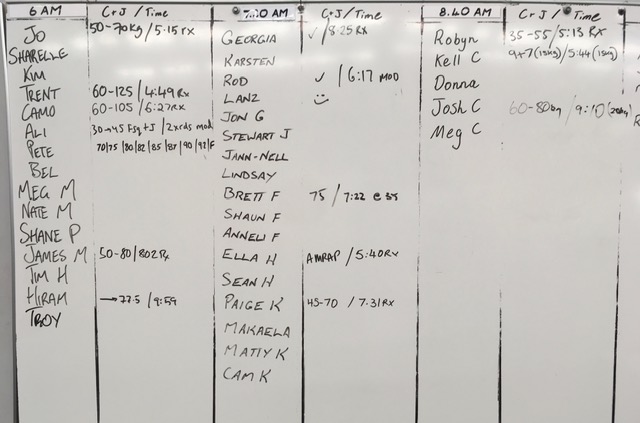 6 AM
C+J / Time
JO 50-70kg / 5.15 RX
SHARELLE
KIM
TRENT 60-125 / 4:49 RX
CAMO 60-105 / 6:27 RX
ALI 30→45 Fsq+J / 2xrds mod
PETE 70/75/80/82/85/87/90/92/F
BEL
MEG M
NATE M
SHANE P
JAMES M 50-80/802 Rx
TIM H
HIRAM →77.5 / 9:59
TROY
AM
C+J / Time
GEORGIA ✓ / 8.25 RX
KARSTEN
ROD ✓ / 6:17 MOD
LANZ
JON G
STEWART J
JANN-NELL
LINDSAY
BRETT F 75 / 7:22 @ 35
SHAUN F
ANNELI F
ELLA H AMRAP / 5:40 RX
SEAN H
PAIGE K 45-70 / 7.31 RX
MAKAELA
MATTY K
CAM K
8.40 AM
C+J / Time
Robyn 35-55 / 5:13 RX
Kell C 9+7 (15kg) / 5:44 (15kg)
Donna
Josh C 60-80kg / 9:10 (20kg)
Meg C